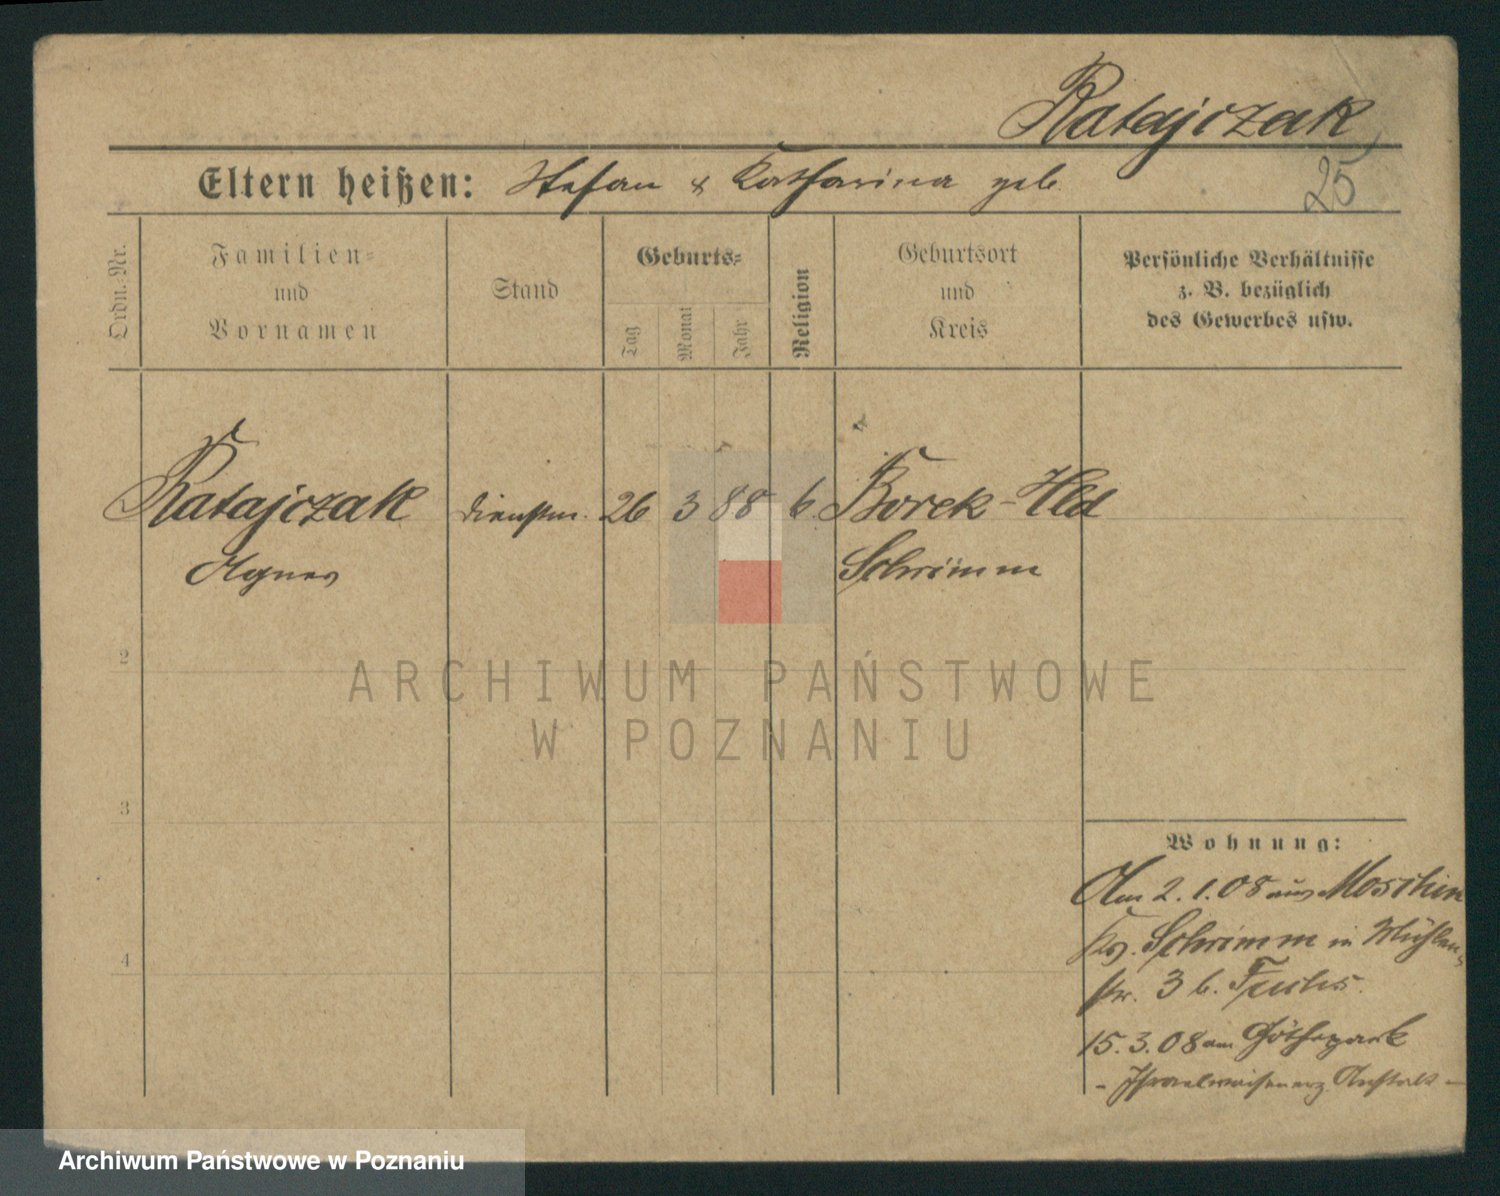 Ratajczak
25
Eltern heißen: Stefan & Katharina geb.
Ordn.-Nr.
Familien-
und
Vornamen
Stand
Geburts-
Tag
Monat
Jahr
Religion
Geburtsort
und
Kreis
Persönliche Verhältnisse
z. B. bezüglich
des Gewerbes usw.
Ratajczak Dienstm. 26 3 88 k. Borek-Hld
Agnes Schrimm
2
3
4
ARCHIWUM PAŃSTWOWE
W POZNANIU
Wohnung:
Am 2.1.08 aus Moschin
Krs. Schrimm in Mühlen-
str. 3 b. Fuchs.
15.3.08 am Göthepark
Archiwum Państwowe w Poznaniu